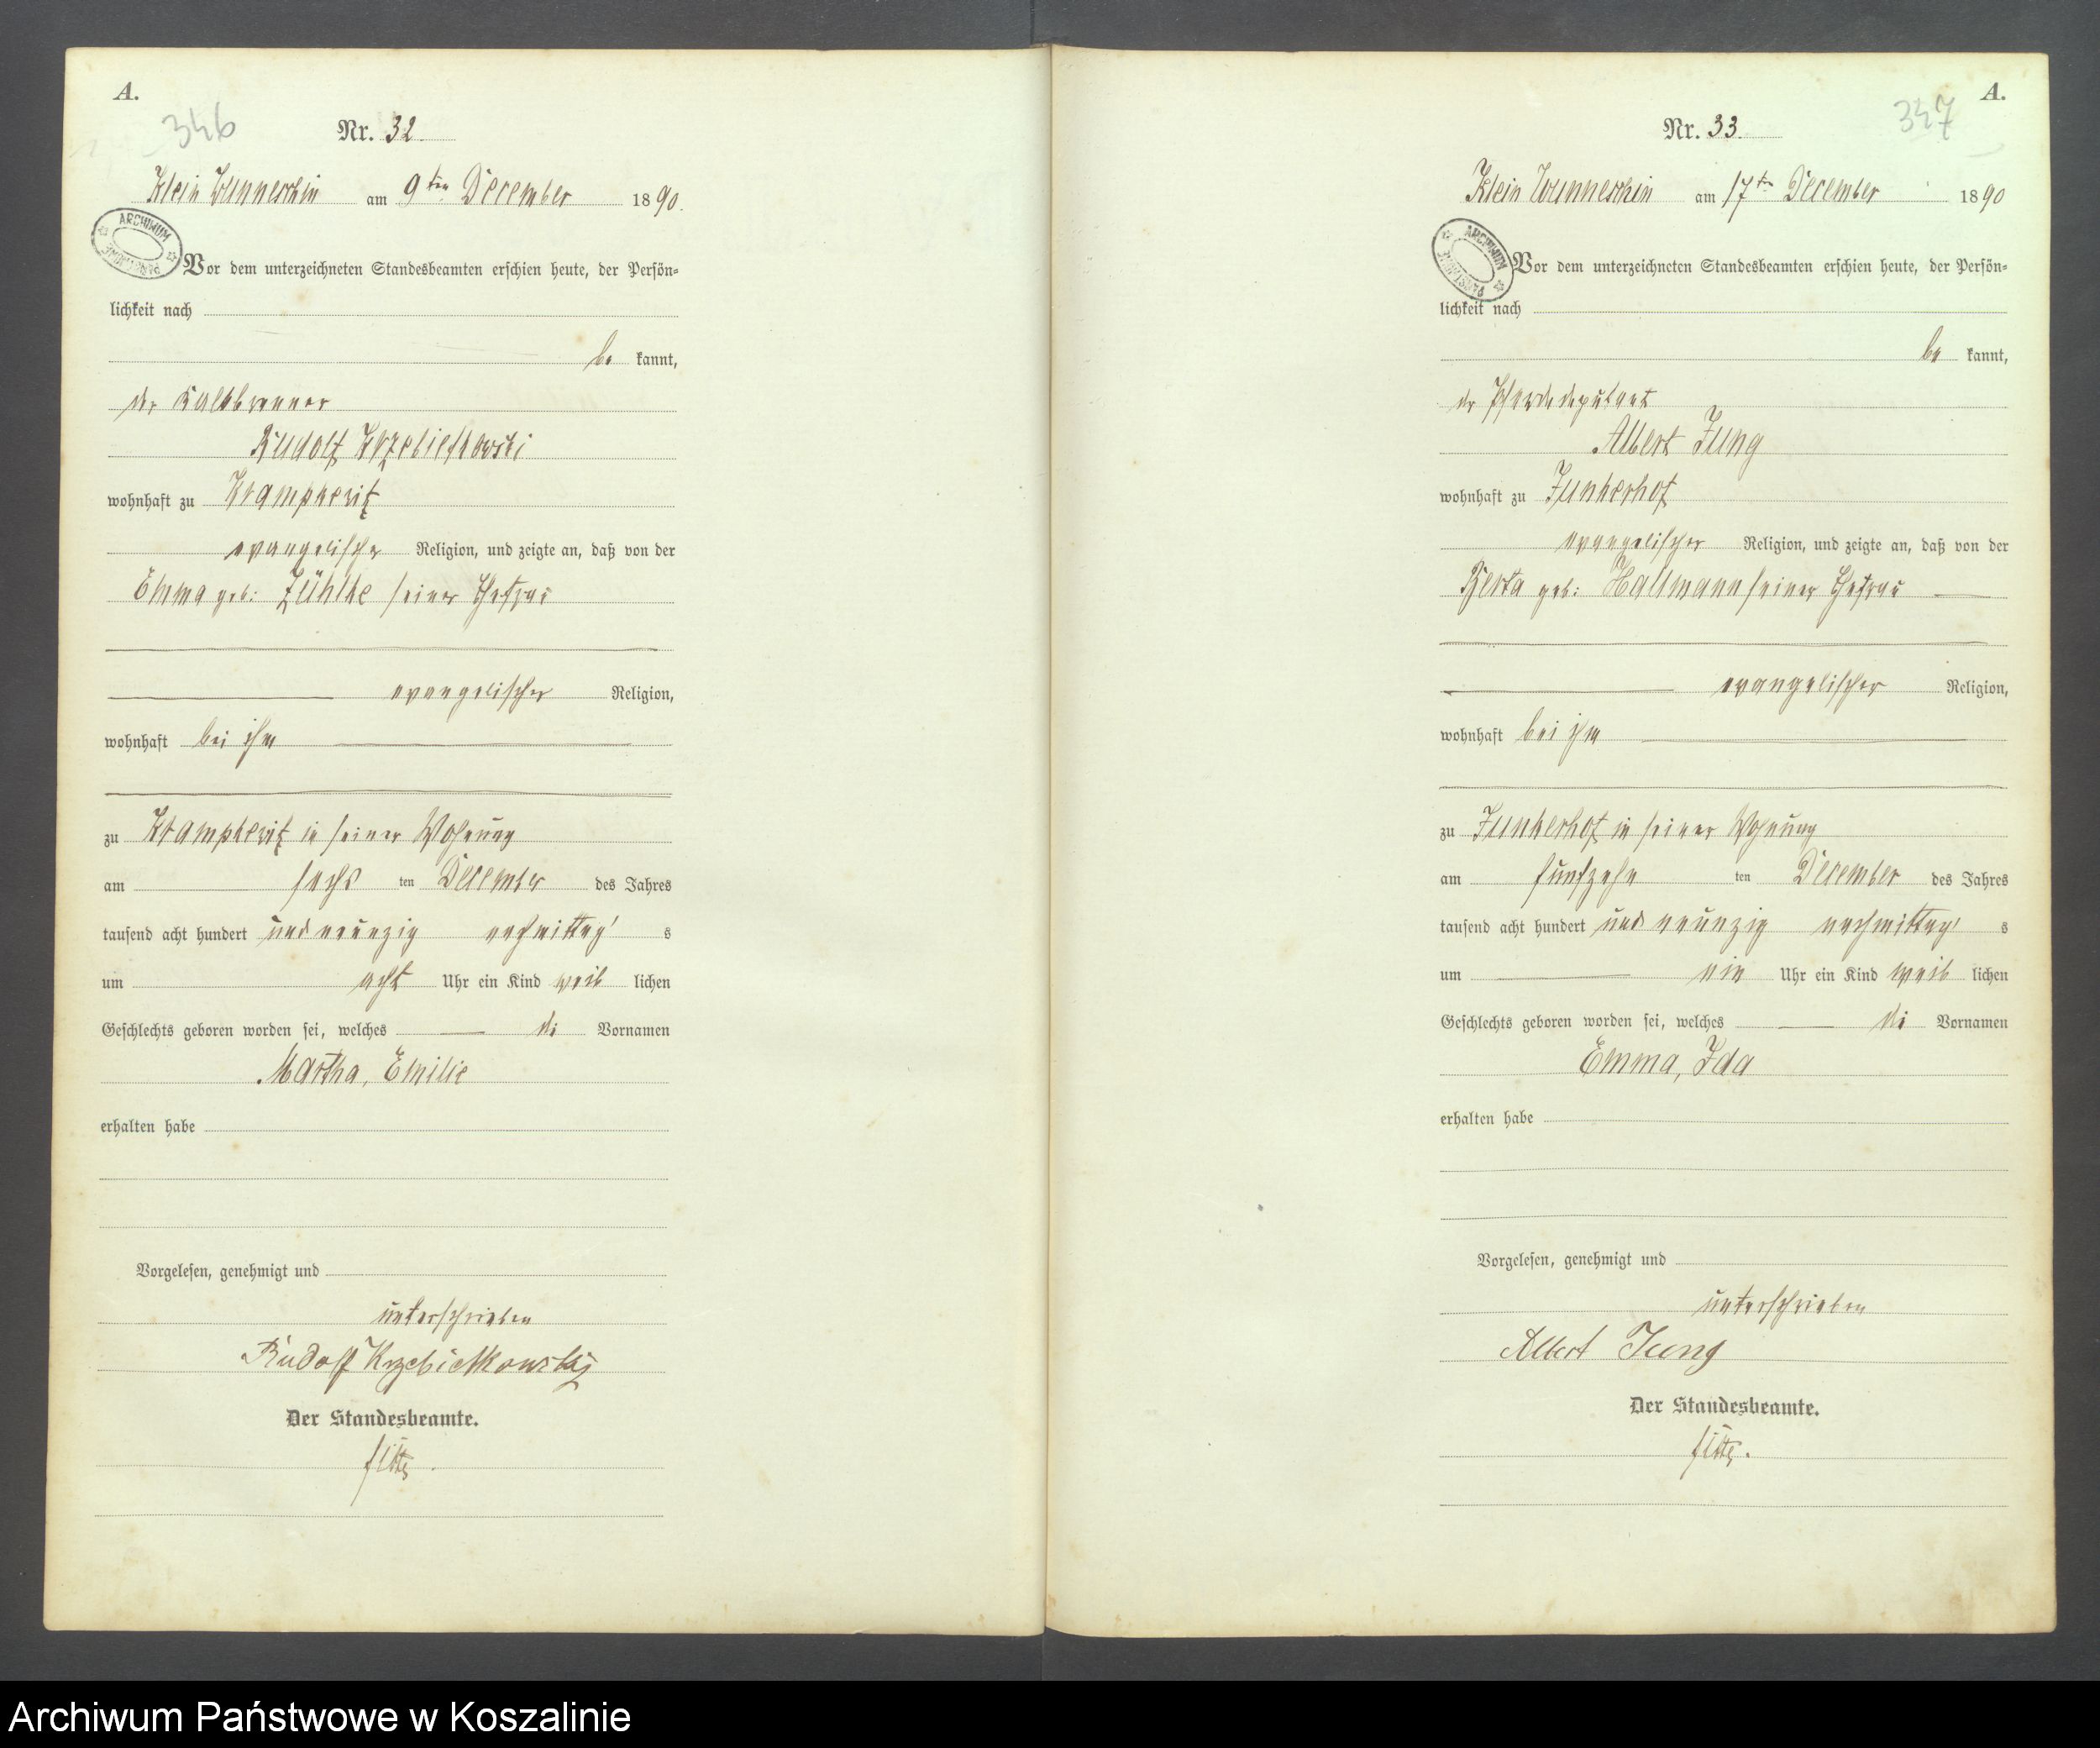 A.
346
Nr. 32.
Klein Wunneschin am 9ten December 1890.
ARCHIWUM PAŃSTWOWE
Vor dem unterzeichneten Standesbeamten erschien heute, der Persön-
lichkeit nach
be kannt,
der Kalkbrenner
Rudolf Krzebietkowski
wohnhaft zu Krampkewitz
evangelischer Religion, und zeigte an, daß von der
Emma geb: Zühlke seiner Ehefrau
evangelischer Religion,
wohnhaft bei ihm
zu Krampkewitz in seiner Wohnung
am sechs ten December des Jahres
tausend acht hundert und neunzig nachmittag s
um acht Uhr ein Kind weib lichen
Geschlechts geboren worden sei, welches die Vornamen
Martha, Emilie
erhalten habe
Vorgelesen, genehmigt und
unterschrieben
Rudolf Krzebietkowski
Der Standesbeamte.
A.
347
Nr. 33.
Klein Wunneschin am 17ten December 1890
ARCHIWUM PAŃSTWOWE
Vor dem unterzeichneten Standesbeamten erschien heute, der Persön-
lichkeit nach
be kannt,
der Pferdedeputant
Albert Jung
wohnhaft zu Junkerhof
evangelischer Religion, und zeigte an, daß von der
Berta geb: Hallmann seiner Ehefrau
evangelischer Religion,
wohnhaft bei ihm
zu Junkerhof in seiner Wohnung
am fünfzehn ten December des Jahres
tausend acht hundert und neunzig nachmittag s
um ein Uhr ein Kind weib lichen
Geschlechts geboren worden sei, welches die Vornamen
Emma, Ida
erhalten habe
Vorgelesen, genehmigt und
unterschrieben
Albert Jung
Der Standesbeamte.
Archiwum Państwowe w Koszalinie